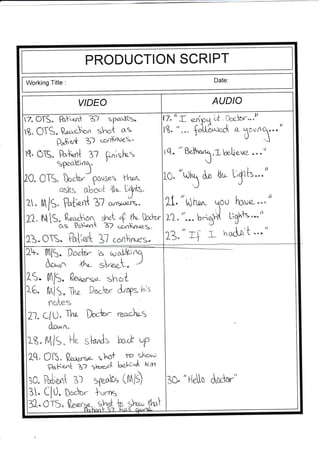 PRODUCTION SCRIPT
Working Title :
Date:
VIDEO
AUDIO
17. OTS. Patient 37 speaks.
18. OTS. Reaction shot as
Patient 37 continues.
19. OTS. Patient 37 finishes
speaking.
20. OTS. Doctor pauses then
asks about the lights.
21. M/S. Patient 37 answers.
22. M/S. Reaction shot of the Doctor
as Patient 37 continues.
23. OTS. Patient 37 continues.
17. "I enjoy it Doctor..."
18. "... followed a young..."
19. "Bethany, I believe ..."
20. "Why do the lights..."
21. "When you have..."
22. "... bright lights..."
23. "If I hadn't ..."
24. M/S. Doctor is walking
down the street.
25. M/S. Reverse shot
26. M/S. The Doctor drops his
notes
27. C/U. The Doctor reaches
down.
28. M/S. He stands back up
29. OTS. Reverse shot to show
Patient 37 stood behind him
30. Patient 37 speaks (M/S)
31. C/U. Doctor turns
32. OTS. Reverse shot to show that
Patient 37 has gone
30. "Hello doctor"